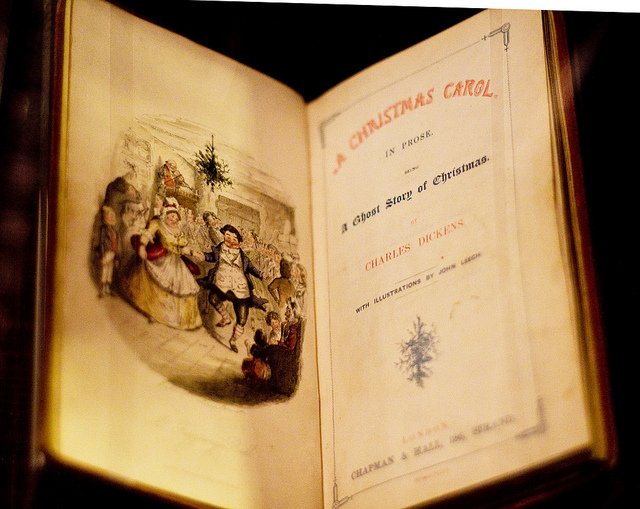 A CHRISTMAS CAROL.
IN PROSE.
BEING
A Ghost Story of Christmas.
BY
CHARLES DICKENS.
WITH ILLUSTRATIONS BY JOHN LEECH.
LONDON
CHAPMAN & HALL, 186, STRAND.